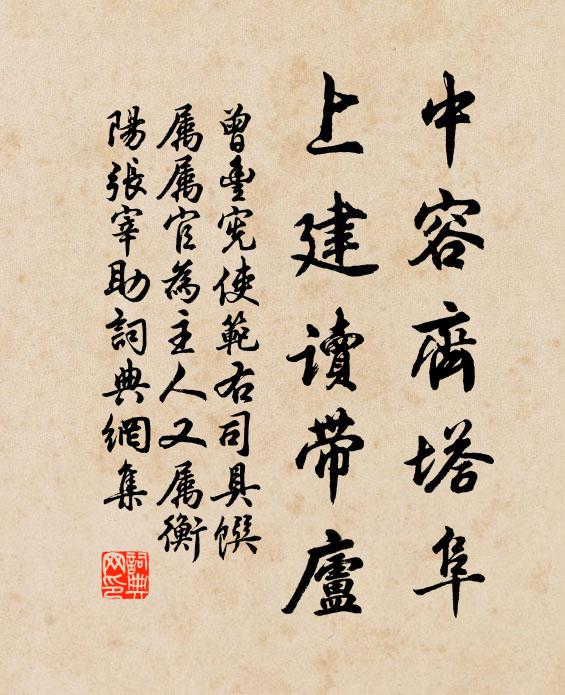 中容齊塔阜
上建讀帶廬
曾豊宪使範右司具饌
属属官為主人又属衡
陽張宰助詞典網集
詞典
网印